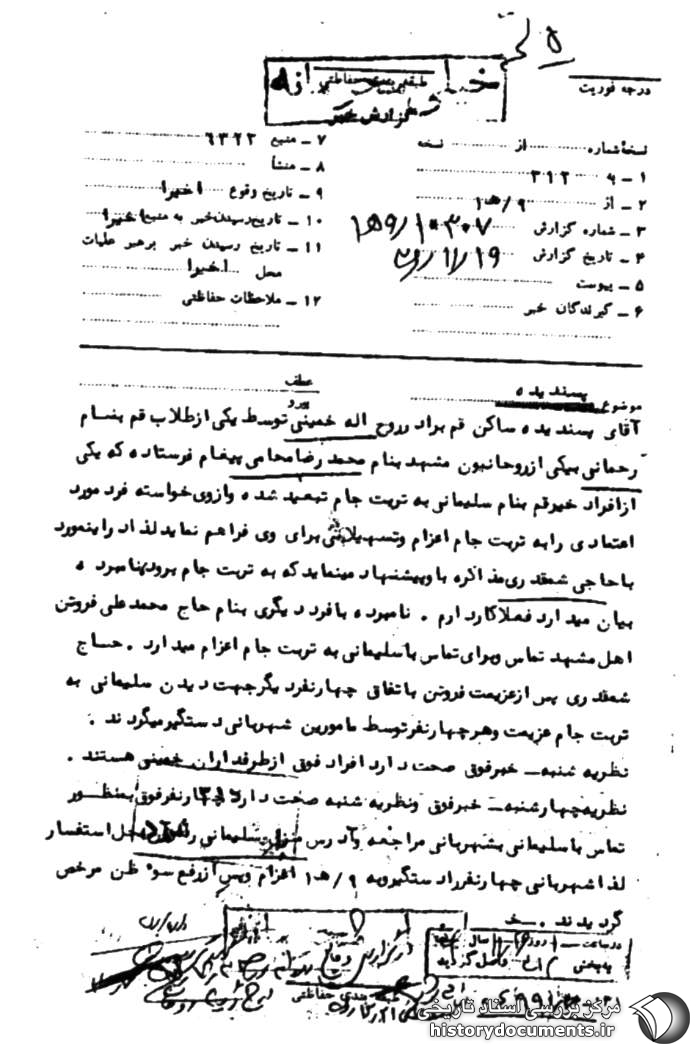 درجه فوریت
طبقه بندی حفاظتی
گزارش خبر
نسخهٔ شماره از نسخه
۱ - به ۳۱۲
۲ - از ۹/هـ۱
۳ - شماره گزارش
۴ - تاریخ گزارش
۵ - پیوست
۶ - گیرندگان خبر
۷ - منبع ۶۳۲۲
۸ - منشأ
۹ - تاریخ وقوع اخیرا
۱۰ - تاریخ رسیدن خبر به منبع اخیرا
۱۱ - تاریخ رسیدن خبر برهبر عملیات
محل اخیرا
۱۲ - ملاحظات حفاظتی
موضوع پسندیده
عطف
پیرو
آقای پسندیده ساکن قم برادر روح اله خمینی توسط یکی از طلاب قم بنام
رحمانی بیکی از روحانیون مشهد بنام محمد رضا محامی پیغام فرستاده که یکی
از افراد خیر قم بنام سلیمانی به تربت جام تبعید شده و از وی خواسته فرد مورد
اعتمادی را به تربت جام اعزام و تسهیلاتی برای وی فراهم نماید لذا در اینمورد
با حاجی شعقدری مذاکره باو پیشنهاد مینماید که به تربت جام برود نامبرده
بیان میدارد فعلا کار دارم . نامبرده با فرد دیگری بنام حاج محمد علی فروتن
اهل مشهد تماس و برای تماس با سلیمانی به تربت جام اعزام میدارد . حاج
شعقدری پس از عزیمت فروتن باتفاق چهار نفر دیگر جهت دیدن سلیمانی به
تربت جام عزیمت و هر چهار نفر توسط مامورین شهربانی دستگیر میگردند .
نظریه شنبه - خبر فوق صحت دارد افراد فوق از طرفداران خمینی هستند .
نظریه چهارشنبه - خبر فوق و نظریه شنبه صحت دارد چهار نفر فوق بمنظور
تماس با سلیمانی بشهربانی مراجعه و آدرس منزل سلیمانی را استفسار
لذا شهربانی چهار نفر را دستگیر و به ۹/هـ۱ اعزام و پس از رفع سوء ظن مرخص
گردیدند .
طبقه بندی حفاظتی
مرکز بررسی اسناد تاریخی
historydocuments.ir